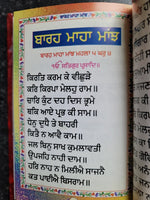 ਬਾਰਹ ਮਾਹਾ ਮਾਂਝ
ਬਾਰਹ ਮਾਹਾ ਮਾਂਝ
ਬਾਰਹ ਮਾਹਾ ਮਾਂਝ ਮਹਲਾ ੫ ਘਰੁ ੪
ੴ ਸਤਿਗੁਰ ਪ੍ਰਸਾਦਿ॥
ਕਿਰਤਿ ਕਰਮ ਕੇ ਵੀਛੁੜੇ
ਕਰਿ ਕਿਰਪਾ ਮੇਲਹੁ ਰਾਮ॥
ਚਾਰਿ ਕੁੰਟ ਦਹ ਦਿਸ ਭ੍ਰਮੇ
ਥਕਿ ਆਏ ਪ੍ਰਭ ਕੀ ਸਾਮ॥
ਧੇਨੁ ਦੁਧੈ ਤੇ ਬਾਹਰੀ
ਕਿਤੈ ਨ ਆਵੈ ਕਾਮ॥
ਜਲ ਬਿਨੁ ਸਾਖ ਕੁਮਲਾਵਤੀ
ਉਪਜਹਿ ਨਾਹੀ ਦਾਮ॥
ਹਰਿ ਨਾਹ ਨ ਮਿਲੀਐ ਸਾਜਨੈ
ਕਤ ਪਾਈਐ ਬਿਸਰਾਮ॥